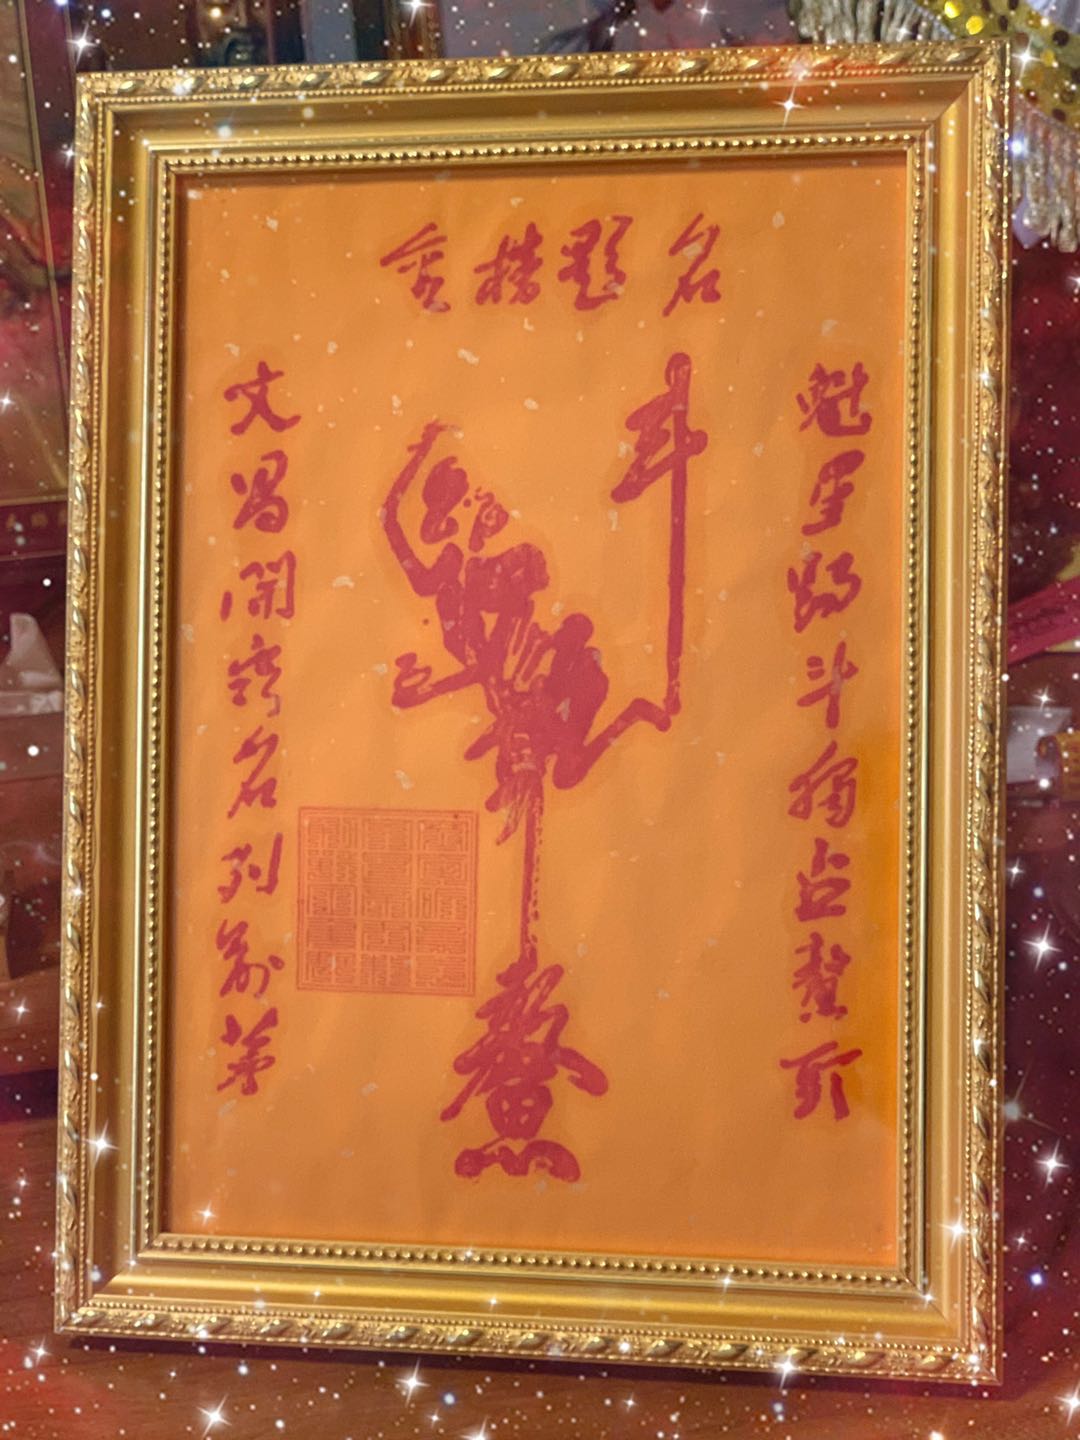 金榜題名
魁星踢斗獨占鰲頭
文昌開竅名列前茅
斗
鰲